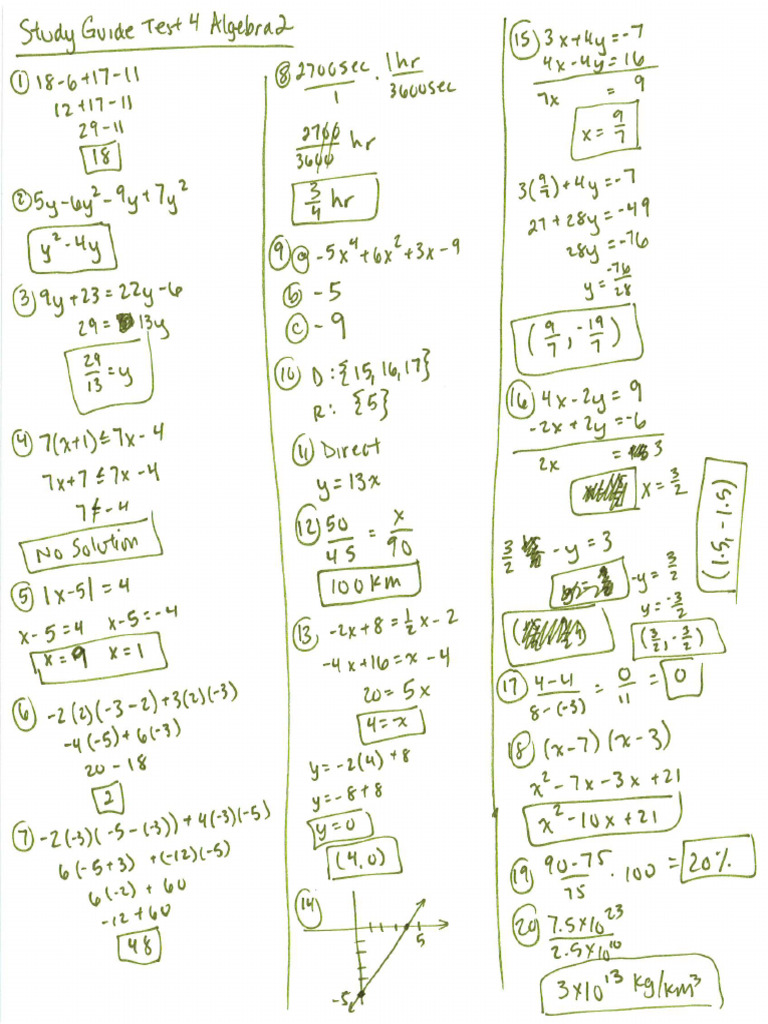 Study Guide Test 4 Algebra 2
① 18-6+17-11
12+17-11
29-11
18
② 5y-6y²-9y+7y²
y²-4y
③ 9y+23=22y-6
29= 13y
29/13=y
④ 7(x+1)≤7x-4
7x+7≤7x-4
7≰-4
No Solution
⑤ |x-5|=4
x-5=4 x-5=-4
x=9 x=1
⑥ -2(2)(-3-2)+3(2)(-3)
-4(-5)+6(-3)
20-18
2
⑦ -2(-3)(-5-(-3))+4(-3)(-5)
6(-5+3) +(-12)(-5)
6(-2) + 60
-12+60
48
⑧ 2700sec/1 · 1hr/3600sec
2700/3600 hr
3/4 hr
⑨ ⓐ -5x⁴+6x²+3x-9
ⓑ -5
ⓒ -9
⑩ D:{15,16,17}
R: {5}
⑪ Direct
y=13x
⑫ 50/45 = x/90
100km
⑬ -2x+8=1/2x-2
-4x+16=x-4
20=5x
4=x
y=-2(4)+8
y=-8+8
y=0
(4,0)
⑭
5
-5
⑮ 3x+4y=-7
4x-4y=16
7x = 9
x=9/7
3(9/7)+4y=-7
27+28y=-49
28y=-76
y=-76/28
(9/7,-19/7)
⑯ 4x-2y=9
-2x+2y=-6
2x = 3
x=3/2
3/2 -y=3
-y=3/2
y=-3/2
(3/2,-3/2)
(1.5,-1.5)
⑰ 4-4/8-(-3) = 0/11 = 0
⑱ (x-7)(x-3)
x²-7x-3x+21
x²-10x+21
⑲ 90-75/75 · 100 = 20%
⑳ 7.5×10²³/2.5×10¹⁰
3×10¹³ kg/km³